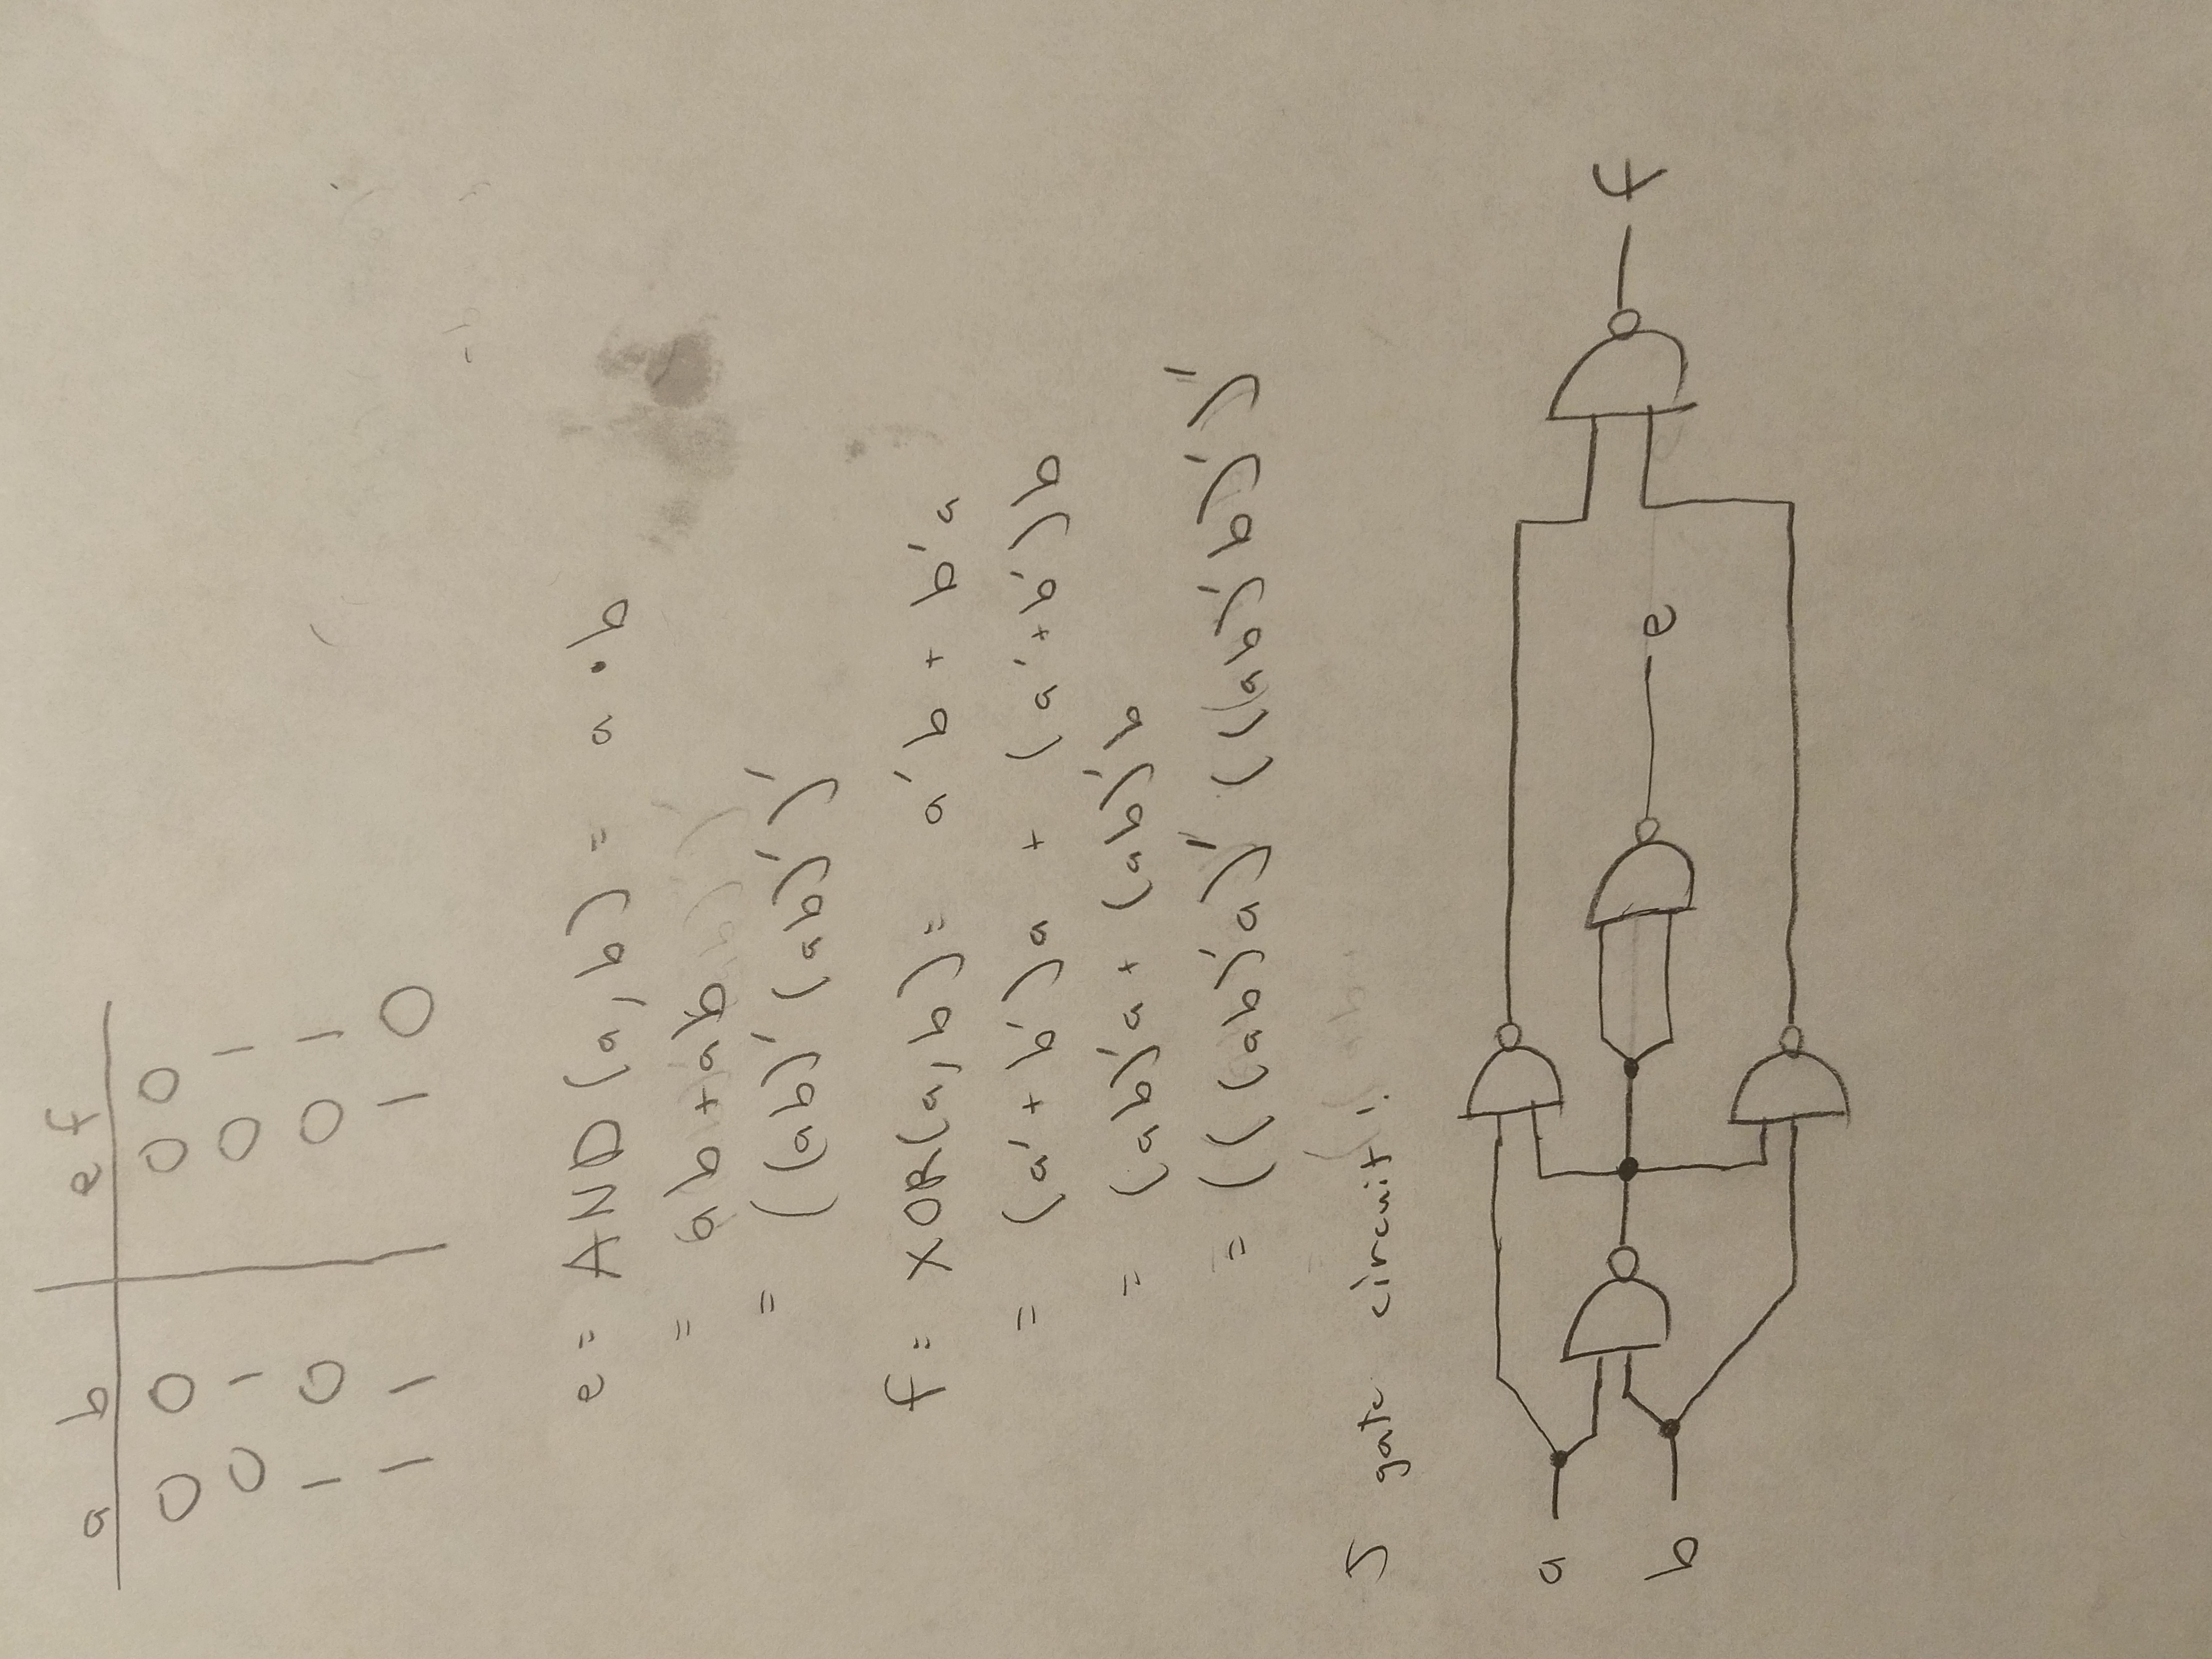 a b e f
0 0 0 0
0 1 0 1
1 0 0 1
1 1 1 0
e = AND(a,b) = a • b
= ab + ab
= ((ab)′(ab)′)′
f = XOR(a,b) = a′b + b′a
= (a′ + b′)a + (a′ + b′)b
= (ab)′a + (ab)′b
= (((ab)′a)′((ab)′b)′)′
5 gate circuit!
a
b
e
f